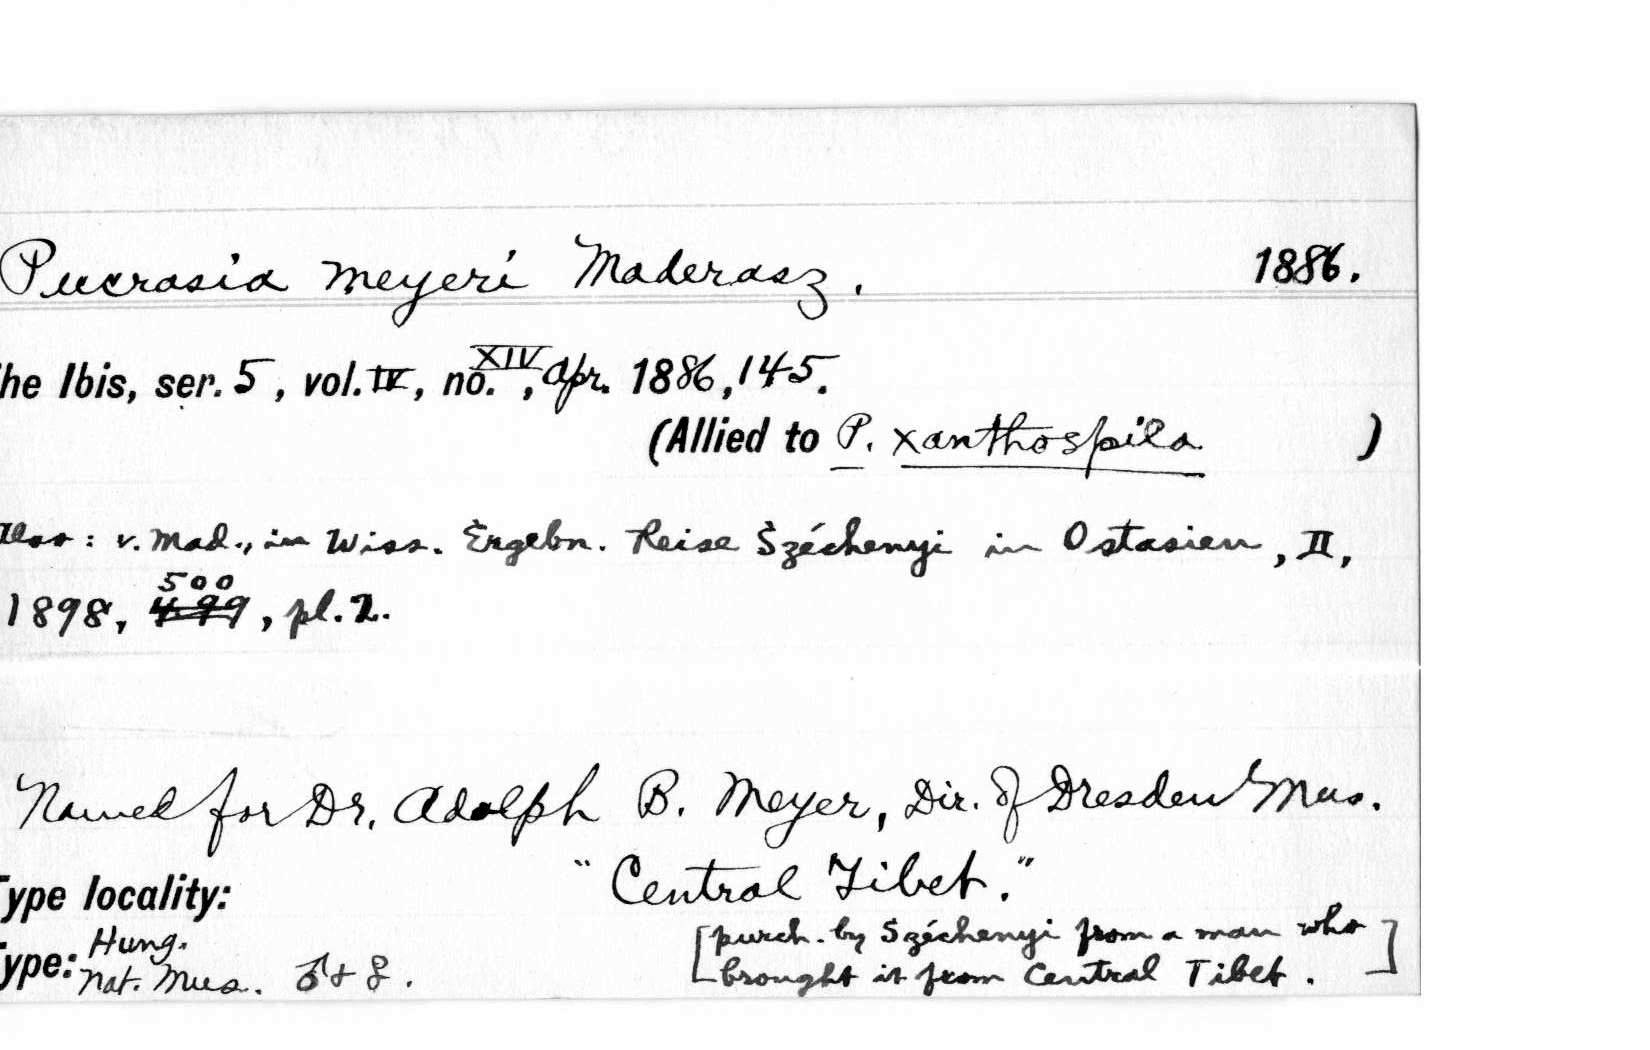 Pucrasia meyeri Maderasz. 1886.
he Ibis, ser. 5, vol. IV, no. XIV, Apr. 1886, 145.
(Allied to P. xanthospila )
Also: v. Mad., in Wiss. Ergebn. Reise Széchenyi in Ostasien, II,
500
1898, 499, pl. 2.
Named for Dr. Adolph B. Meyer, Dir. of Dresden Mus.
Type locality: "Central Tibet."
Hung. [purch. by Széchenyi from a man who
ype: Nat. Mus. ♂ & ♀. brought it from Central Tibet.]